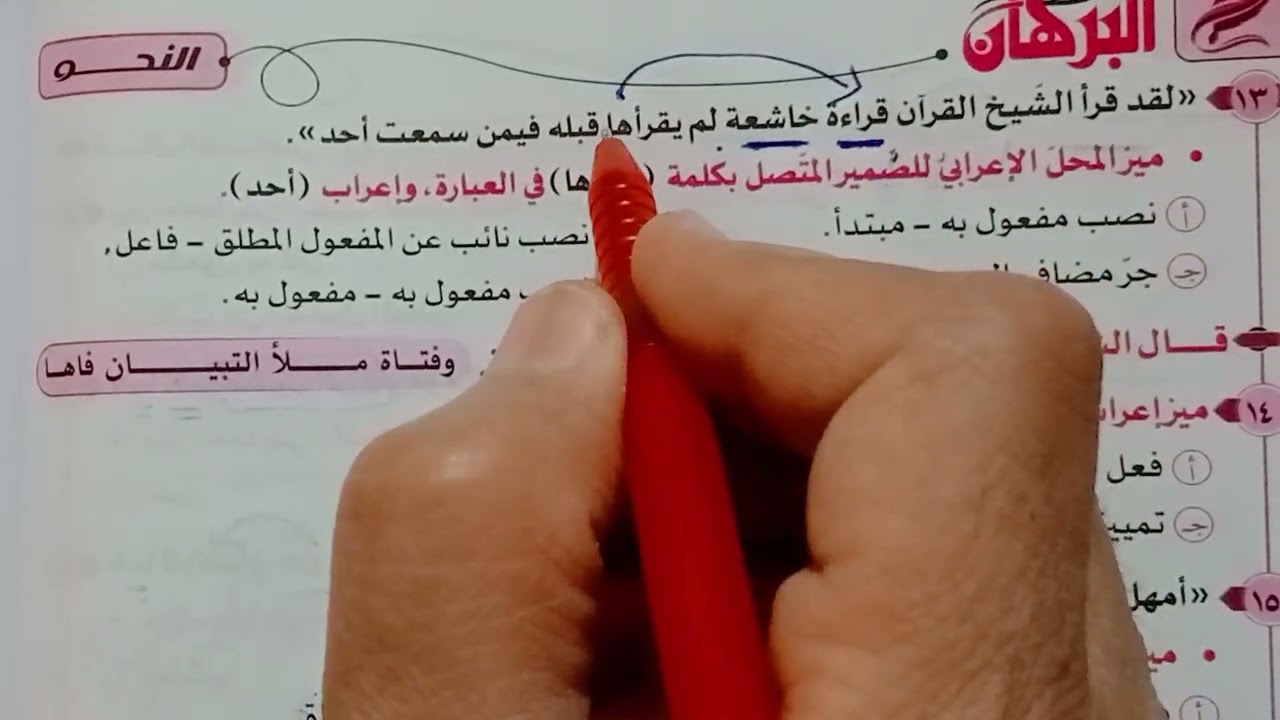 البرهان
النحو
١٣ «لقد قرأ الشيخ القرآن قراءة خاشعة لم يقرأها قبله فيمن سمعت أحد».
• ميز المحل الإعرابي للضمير المتصل بكلمة ( ها) في العبارة، وإعراب (أحد).
أ نصب مفعول به – مبتدأ.
نصب نائب عن المفعول المطلق – فاعل.
ج جر مضاف
مفعول به – مفعول به.
قال
وفتاة ملأ التبيان فاها
١٤ ميز إعراب
أ فعل
ج تمييز
١٥ «أمهل
•
أ